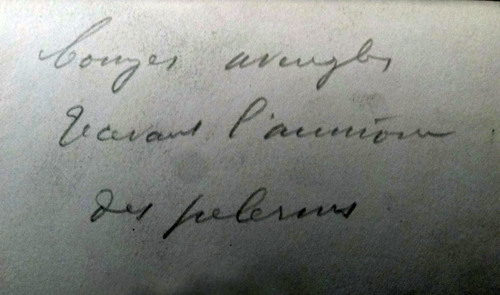 bonzes aveugles
recevant l'aumône
des pelerins